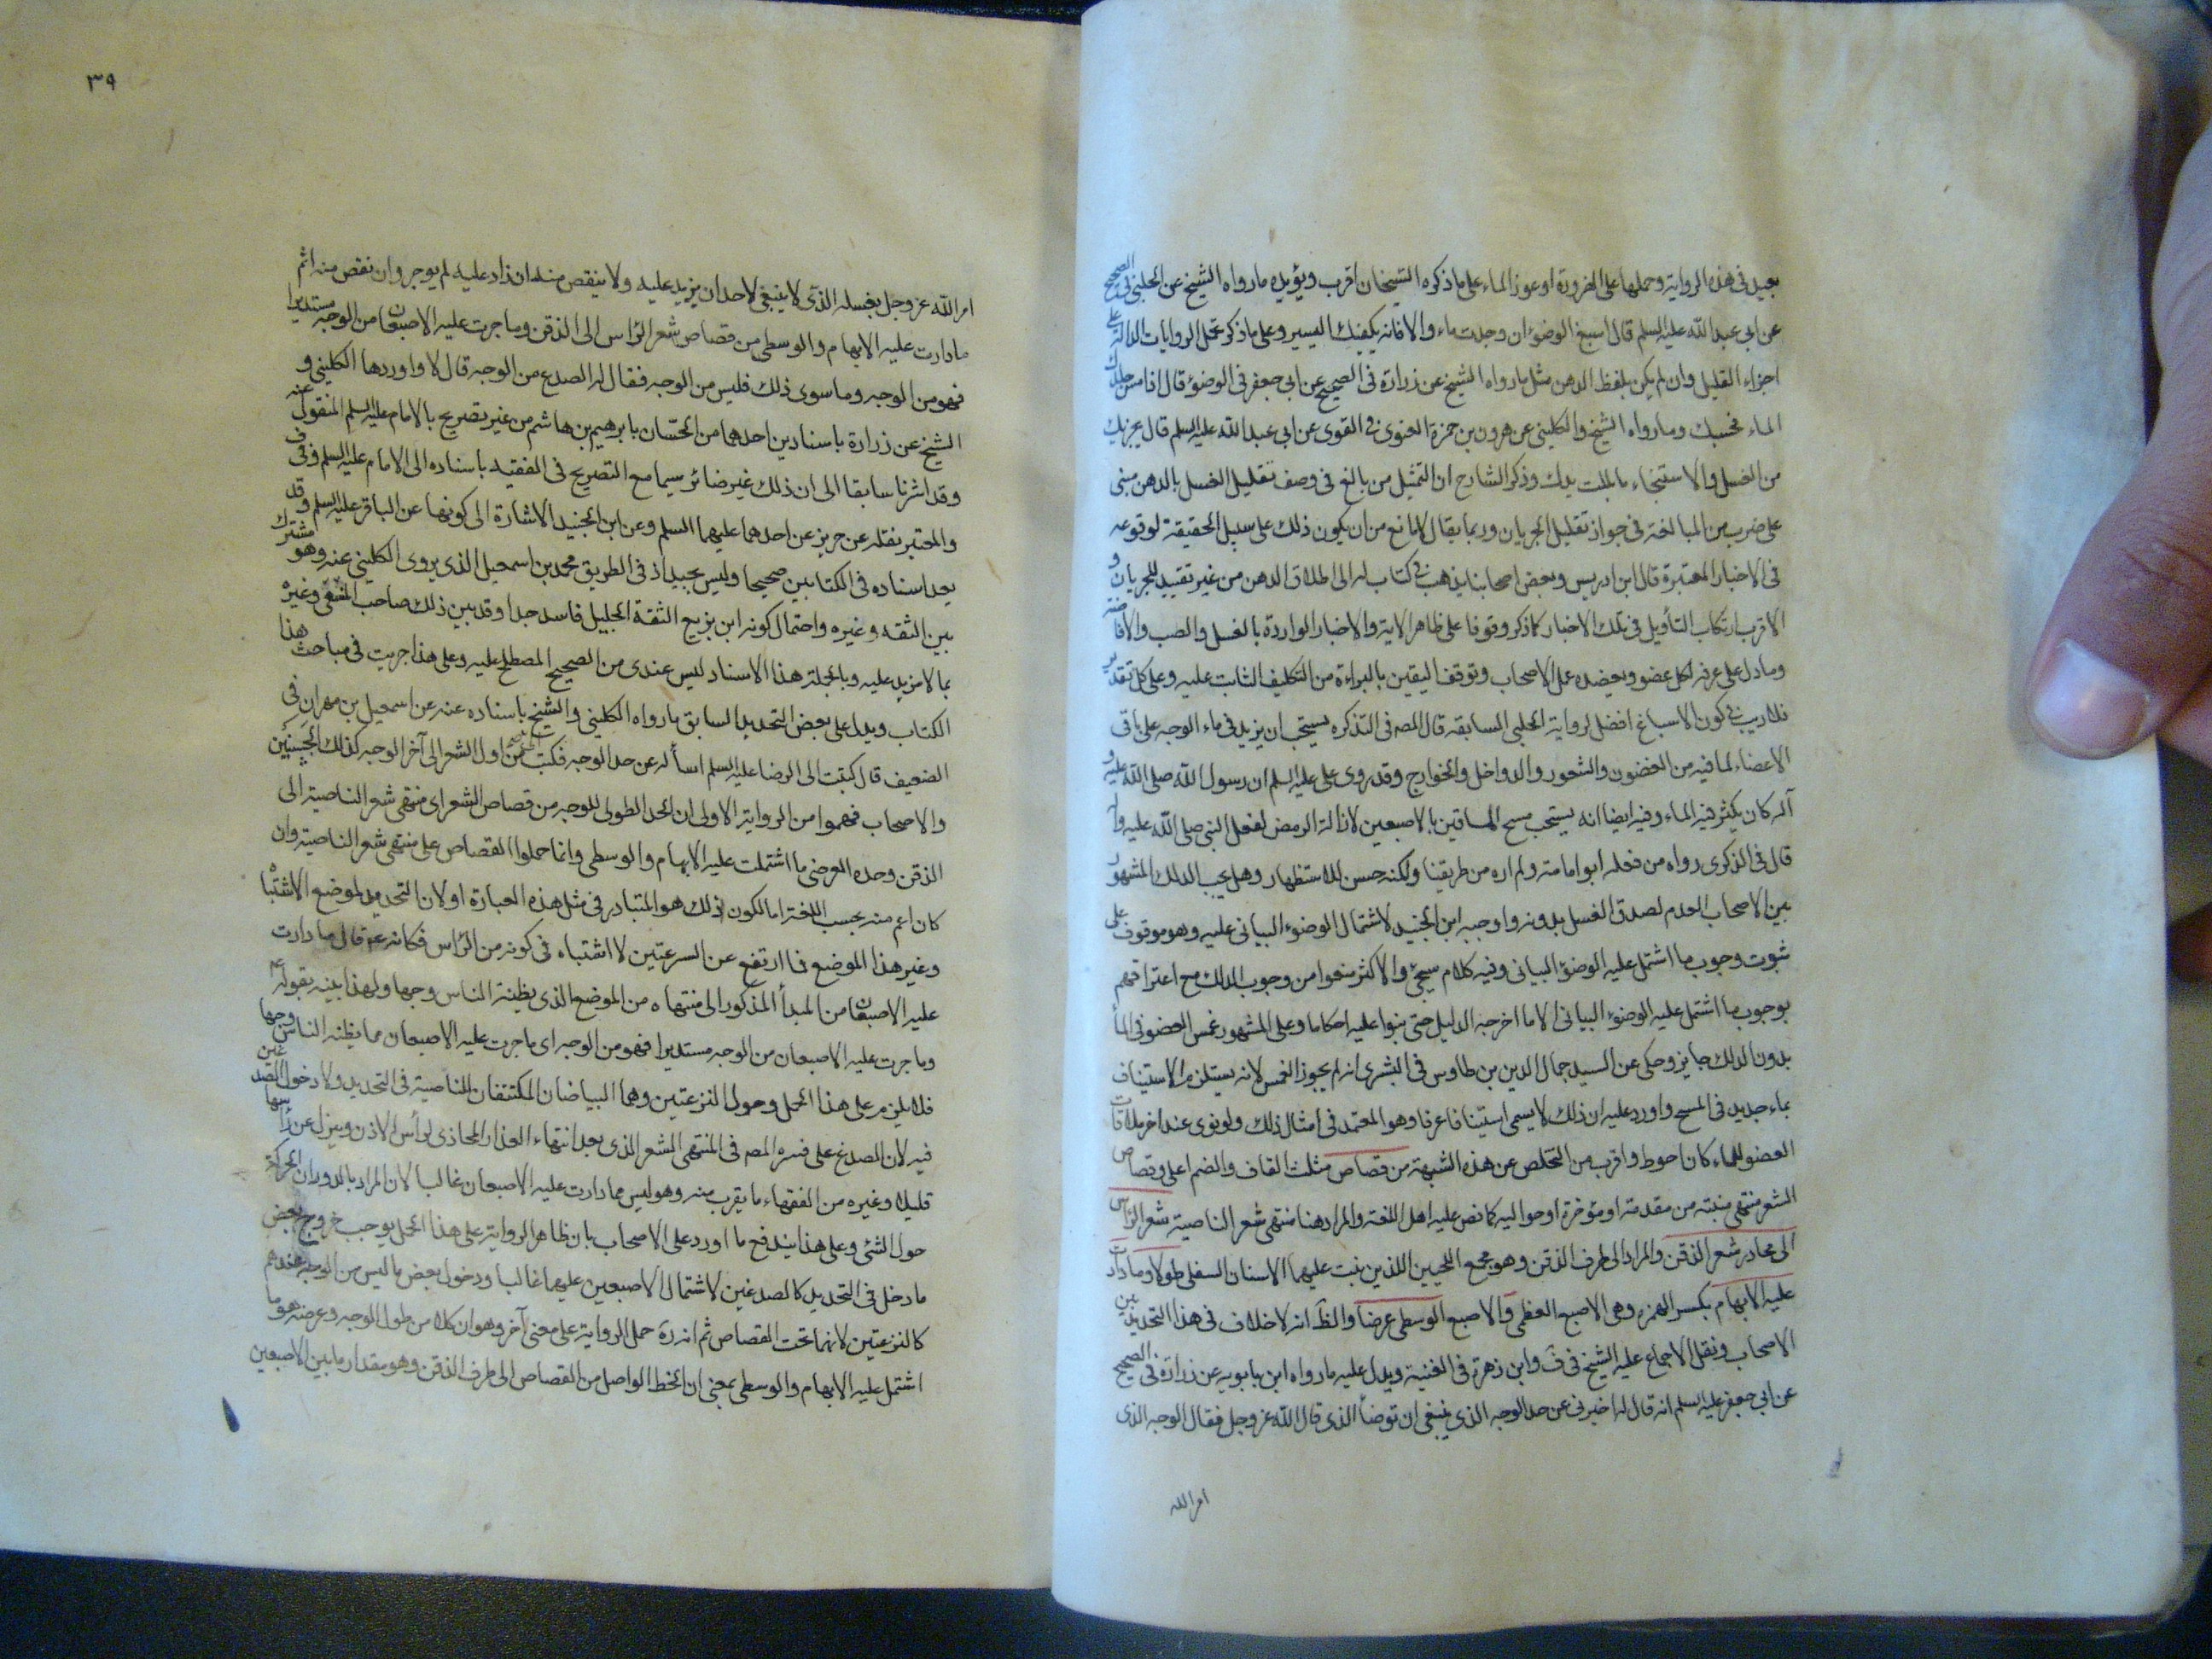 بعيد في هذه الرواية وحملها على الضرورة او عوز الماء على ما ذكره الشيخان اقرب ويؤيده ما رواه الشيخ عن الحلبي في الصحيح
عن ابي عبد الله عليه السلم قال اسبغ الوضوء ان وجدت ماء والا فانه يكفيك اليسير وعلى ما ذكر تحمل الروايات الدالة على
اجزاء القليل وان لم يكن بلفظ الدهن مثل ما رواه الشيخ عن زرارة في الصحيح عن ابي جعفر في الوضوء قال اذا مس جلدك
الماء فحسبك وما رواه الشيخ والكليني عن هرون بن حمزة الغنوي في القوي عن ابي عبد الله عليه السلم قال يجزيك
من الغسل والاستنجاء ما بلت يدك وذكر الشارح ان التمثيل من بالغ في وصف تقليل الغسل بالدهن مبنى
على ضرب من المبالغة في جواز تقليل الجريان وربما يقال لا مانع من ان يكون ذلك على سبيل الحقيقة لوقوعه
في الاخبار المعتبرة قال ابن ادريس وبعض اصحابنا يذهب في كتاب له الى اطلاق الدهن من غير تقييد للجريان و
الاقرب ارتكاب التأويل في تلك الاخبار كما ذكر وقوفا على ظاهر الاية والاخبار الواردة بالغسل والصب والافاضة
وما دل على غرفة لكل عضو ويعضده عمل الاصحاب وتوقف اليقين بالبراءة من التكليف الثابت عليه وعلى كل تقدير
فلا ريب في كون الاسباغ افضل لرواية الحلبي السابقه قال المصه في التذكره يستحب ان يزيد في ماء الوجه على باقي
الاعضاء لما فيه من الغضون والشعور والدواخل والخوارج وقد روى على عليه السلم ان رسول الله صلى الله عليه و
آله كان يكثر فيه الماء وفيه ايضا انه يستحب مسح الماقين بالاصبعين لازالة الرمص لفعل النبي صلى الله عليه وآله
قال في الذكرى رواه من فعله ابو امامة ولم اره من طريقنا ولكنه حسن للاستظهار وهل يجب الدلك المشهور
بين الاصحاب العدم لصدق الغسل بدونه واوجبه ابن الجنيد لاشتمال الوضوء البياني عليه وهو موقوف على
ثبوت وجوب ما اشتمل عليه الوضوء البياني وفيه كلام سيجئ والاكثر منعوا من وجوب الدلك مع اعترافهم
بوجوب ما اشتمل عليه الوضوء البياني الا ما اخرجه الدليل حتى بنوا عليه احكاما وعلى المشهور غمس العضو في الماء
بدون الدلك جايز وحكى عن السيد جمال الدين بن طاوس في البشرى انه لم يجوز الغمس لانه يستلزم الاستيناف
بماء جديد في المسح واورد عليه ان ذلك لا يسمى استينافا عرفا وهو المعتمد في امثال ذلك ولو نوى عند اخر ملاقات
العضو للماء كان احوط واقرب من التخلص عن هذه الشبهة من قصاص مثلث القاف والضم اعلى وقصاص
الشعر منتهى منبته من مقدمة او مؤخرة او حواليه كما نص عليه اهل اللغة والمراد هنا منتهى شعر الناصية شعر الراس
الى محادر شعر الذقن والمراد الى طرف الذقن وهو مجمع اللحيين اللذين نبت عليهما الاسنان السفلى طولا وما دارت
عليه الابهام بكسر الهمزه وهى الاصبع العظمى والاصبع الوسطى عرضا والظ انه لا خلاف في هذا التحديد بين
الاصحاب ونقل الاجماع عليه الشيخ في ف وابن زهرة في الغنية ويدل عليه ما رواه ابن بابويه عن زرارة في الصحيح
عن ابي جعفر عليه السلم انه قال له اخبرني عن حد الوجه الذي ينبغي ان توضأ الذي قال الله عز وجل فقال الوجه الذي
امر الله
٣٩
امر الله عز وجل بغسله الذي لا ينبغي لاحد ان يزيد عليه ولا ينقص منه ان زاد عليه لم يوجر وان نقص منه اثم
ما دارت عليه الابهام والوسطى من قصاص شعر الراس الى الذقن وما جرت عليه الاصبعان من الوجه مستديرا
فهو من الوجه وما سوى ذلك فليس من الوجه فقال له الصدع من الوجه قال لا واوردها الكليني و
الشيخ عن زرارة باسنادين احدهما من الحسان بابرهيم بن هاشم من غير تصريح بالامام عليه السلم المنقول عنه
وقد اشرنا سابقا الى ان ذلك غير ضائر سيما مع التصريح في الفقيه باسناده الى الامام عليه السلم وفي ف
والمعتبر نقله عن حريز عن احدهما عليهما السلم وعن ابن الجنيد الاشارة الى كونها عن الباقر عليه السلم وقد
يعد اسناده في الكتابين صحيحا وليس بجيد اذ في الطريق محمد بن اسمعيل الذي يروى الكليني عنه وهو مشترك
بين الثقه وغيره واحتمال كونه ابن بزيع الثقة الجليل فاسد جدا وقد بين ذلك صاحب المنتقى وغيره
بما لا مزيد عليه وبالجملة هذا الاسناد ليس عندي من الصحيح المصطلح عليه وعلى هذا جريت في مباحث هذا
الكتاب ويدل على بعض التحديد السابق ما رواه الكليني والشيخ باسناده عنه عن اسمعيل بن مهران في
الضعيف قال كتبت الى الرضا عليه السلم اسأله عن حد الوجه فكتب من اول الشعر الى آخر الوجه كذلك الجبينين
والاصحاب فهموا من الرواية الاولى ان الحد الطولى للوجه من قصاص الشعر اى منتهى شعر الناصية الى
الذقن وحده العرضى ما اشتملت عليه الابهام والوسطى وانما حملوا القصاص على منتهى شعر الناصية وان
كان اعم منه بحسب اللغة اما لكون ذلك هو المتبادر في مثل هذه العبارة او لان التحديد لموضع الاشتباه
وغير هذا الموضع فما ارتفع عن النزعتين لا اشتباه في كونه من الرأس فكانه عم قال ما دارت
عليه الاصبعان من المبدأ المذكور الى منتهاه من الموضع الذي يظنه الناس وجها ولهذا بينه بقوله عم
وما جرت عليه الاصبعان من الوجه مستديرا فهو من الوجه اى ما جرت عليه الاصبعان مما يظنه الناس وجها
فلا يلزم على هذا الحمل دخول النزعتين وهما البياضان المكتنفان للناصية في التحديد ولا دخول الصدغين
فيه لان الصدغ على فسره المصه في المنتهى الشعر الذي بعد انتهاء العذار المحاذى لرأس الاذن وينزل عن رأسها
قليلا وغيره من الفقهاء ما يقرب منه وهو ليس مما دارت عليه الاصبعان غالبا لان المراد بالدوران الحركة
حول الشئ وعلى هذا يندفع ما اورد على الاصحاب بان ظاهر الرواية على هذا الحمل يوجب خروج بعض
ما دخل في التحديد كالصدغين لاشتمال الاصبعين عليهما غالبا ودخول بعض ما ليس من الوجه عندهم
كالنزعتين لانهما تحت القصاص ثم انه ره حمل الرواية على معنى آخر وهو ان كلا من طول الوجه وعرضه هو ما
اشتمل عليه الابهام والوسطى بمعنى ان الخط الواصل من القصاص الى طرف الذقن وهو مقدار ما بين الاصبعين